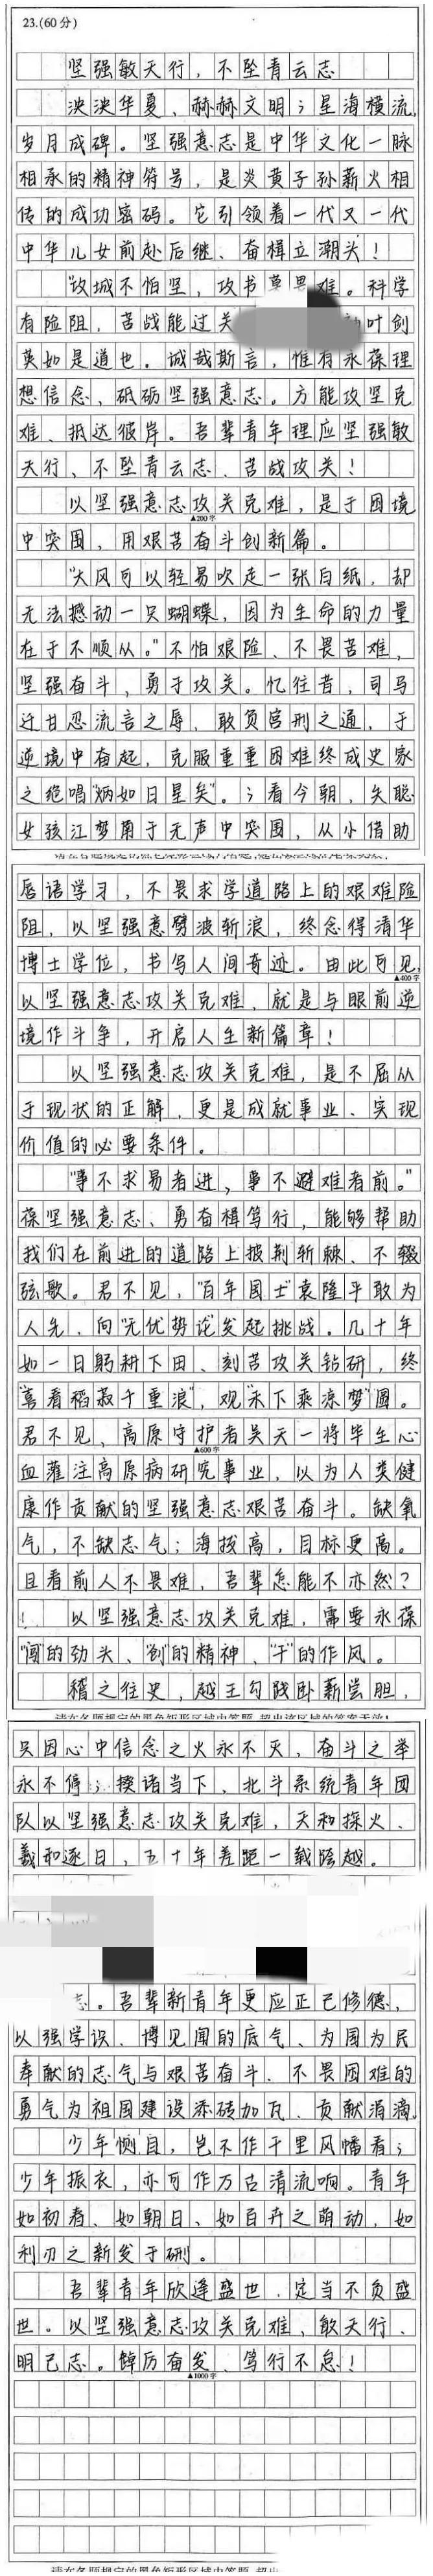 23.(60分)
坚强敏天行，不坠青云志
泱泱华夏、赫赫文明；星海横流，
岁月成碑。坚强意志是中华文化一脉
相承的精神符号，是炎黄子孙薪火相
传的成功密码。它引领着一代又一代
中华儿女前赴后继、奋楫立潮头！
"攻城不怕坚，攻书莫畏难。科学
有险阻，苦战能过关 叶剑
英如是道也。诚哉斯言，惟有永葆理
想信念，砥砺坚强意志。方能攻坚克
难、抵达彼岸。吾辈青年理应坚强敏
天行、不坠青云志、苦战攻关！
以坚强意志攻关克难，是于困境
▲200字
中突围，用艰苦奋斗创新篇。
"大风可以轻易吹走一张白纸，却
无法撼动一只蝴蝶，因为生命的力量
在于不顺从。"不怕艰险、不畏苦难，
坚强奋斗，勇于攻关。忆往昔，司马
迁甘忍流言之辱、敢负宫刑之通，于
逆境中奋起，克服重重困难终成史家
之绝唱"炳如日星矣"。；看今朝，失聪
女孩江梦南于无声中突围，从小借助
唇语学习，不畏求学道路上的艰难险
阻，以坚强意劈波斩浪，终念得清华
博士学位，书写人间奇迹。由此可见，
▲400字
以坚强意志攻关克难，就是与眼前逆
境作斗争，开启人生新篇章！
以坚强意志攻关克难，是不屈从
于现状的正解，更是成就事业、实现
价值的必要条件。
"事不求易者进，事不避难者前。"
葆坚强意志、勇奋楫笃行，能够帮助
我们在前进的道路上披荆斩棘、不辍
弦歌。君不见，"百年国士"袁隆平敢为
人先、向"无优势论"发起挑战。几十年
如一日躬耕下田、刻苦攻关钻研，终
"喜看稻菽千重浪"，观"禾下乘凉梦"圆。
君不见，高原守护者吴天一将毕生心
▲600字
血灌注高原病研究事业，以为人类健
康作贡献的坚强意志艰苦奋斗。缺氧
气，不缺志气；海拔高，目标更高。
且看前人不畏难，吾辈怎能不亦然？
以坚强意志攻关克难，需要永葆
"闯"的劲头、"创"的精神、"干"的作风。
稽之往史，越王勾践卧薪尝胆，
只因心中信念之火永不灭，奋斗之举
永不停；揆诸当下，北斗系统青年团
队以坚强意志攻关克难，天和探火、
羲和逐日，五十年差距一载跨越。
志。吾辈新青年更应正己修德，
以强学识、博见闻的底气、为国为民
奉献的志气与艰苦奋斗、不畏困难的
勇气为祖国建设添砖加瓦、贡献涓滴。
少年恻目，岂不作千里风幡看；
少年振衣，亦可作万古清流响。青年
如初春、如朝日、如百卉之萌动，如
利刃之新发于硎。
吾辈青年欣逢盛世，定当不负盛
世。以坚强意志攻关克难，敏天行、
明己志。踔厉奋发、笃行不怠！
▲1000字